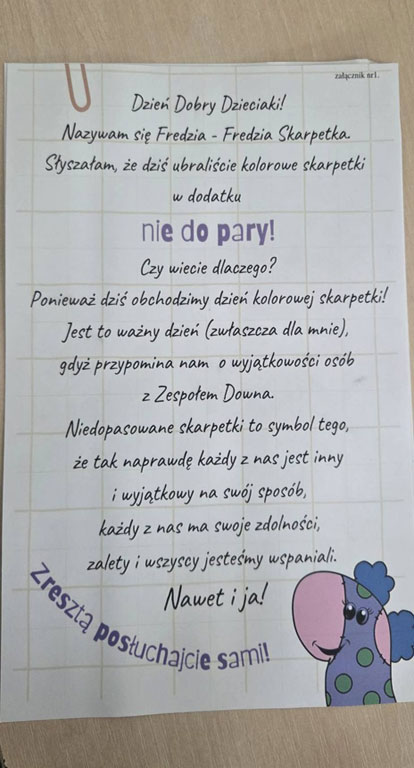 załącznik nr1.
Dzień Dobry Dzieciaki!
Nazywam się Fredzia - Fredzia Skarpetka.
Słyszałam, że dziś ubraliście kolorowe skarpetki
w dodatku
nie do pary!
Czy wiecie dlaczego?
Ponieważ dziś obchodzimy dzień kolorowej skarpetki!
Jest to ważny dzień (zwłaszcza dla mnie),
gdyż przypomina nam o wyjątkowości osób
z Zespołem Downa.
Niedopasowane skarpetki to symbol tego,
że tak naprawdę każdy z nas jest inny
i wyjątkowy na swój sposób,
każdy z nas ma swoje zdolności,
zalety i wszyscy jesteśmy wspaniali.
Nawet i ja!
Zresztą posłuchajcie sami!